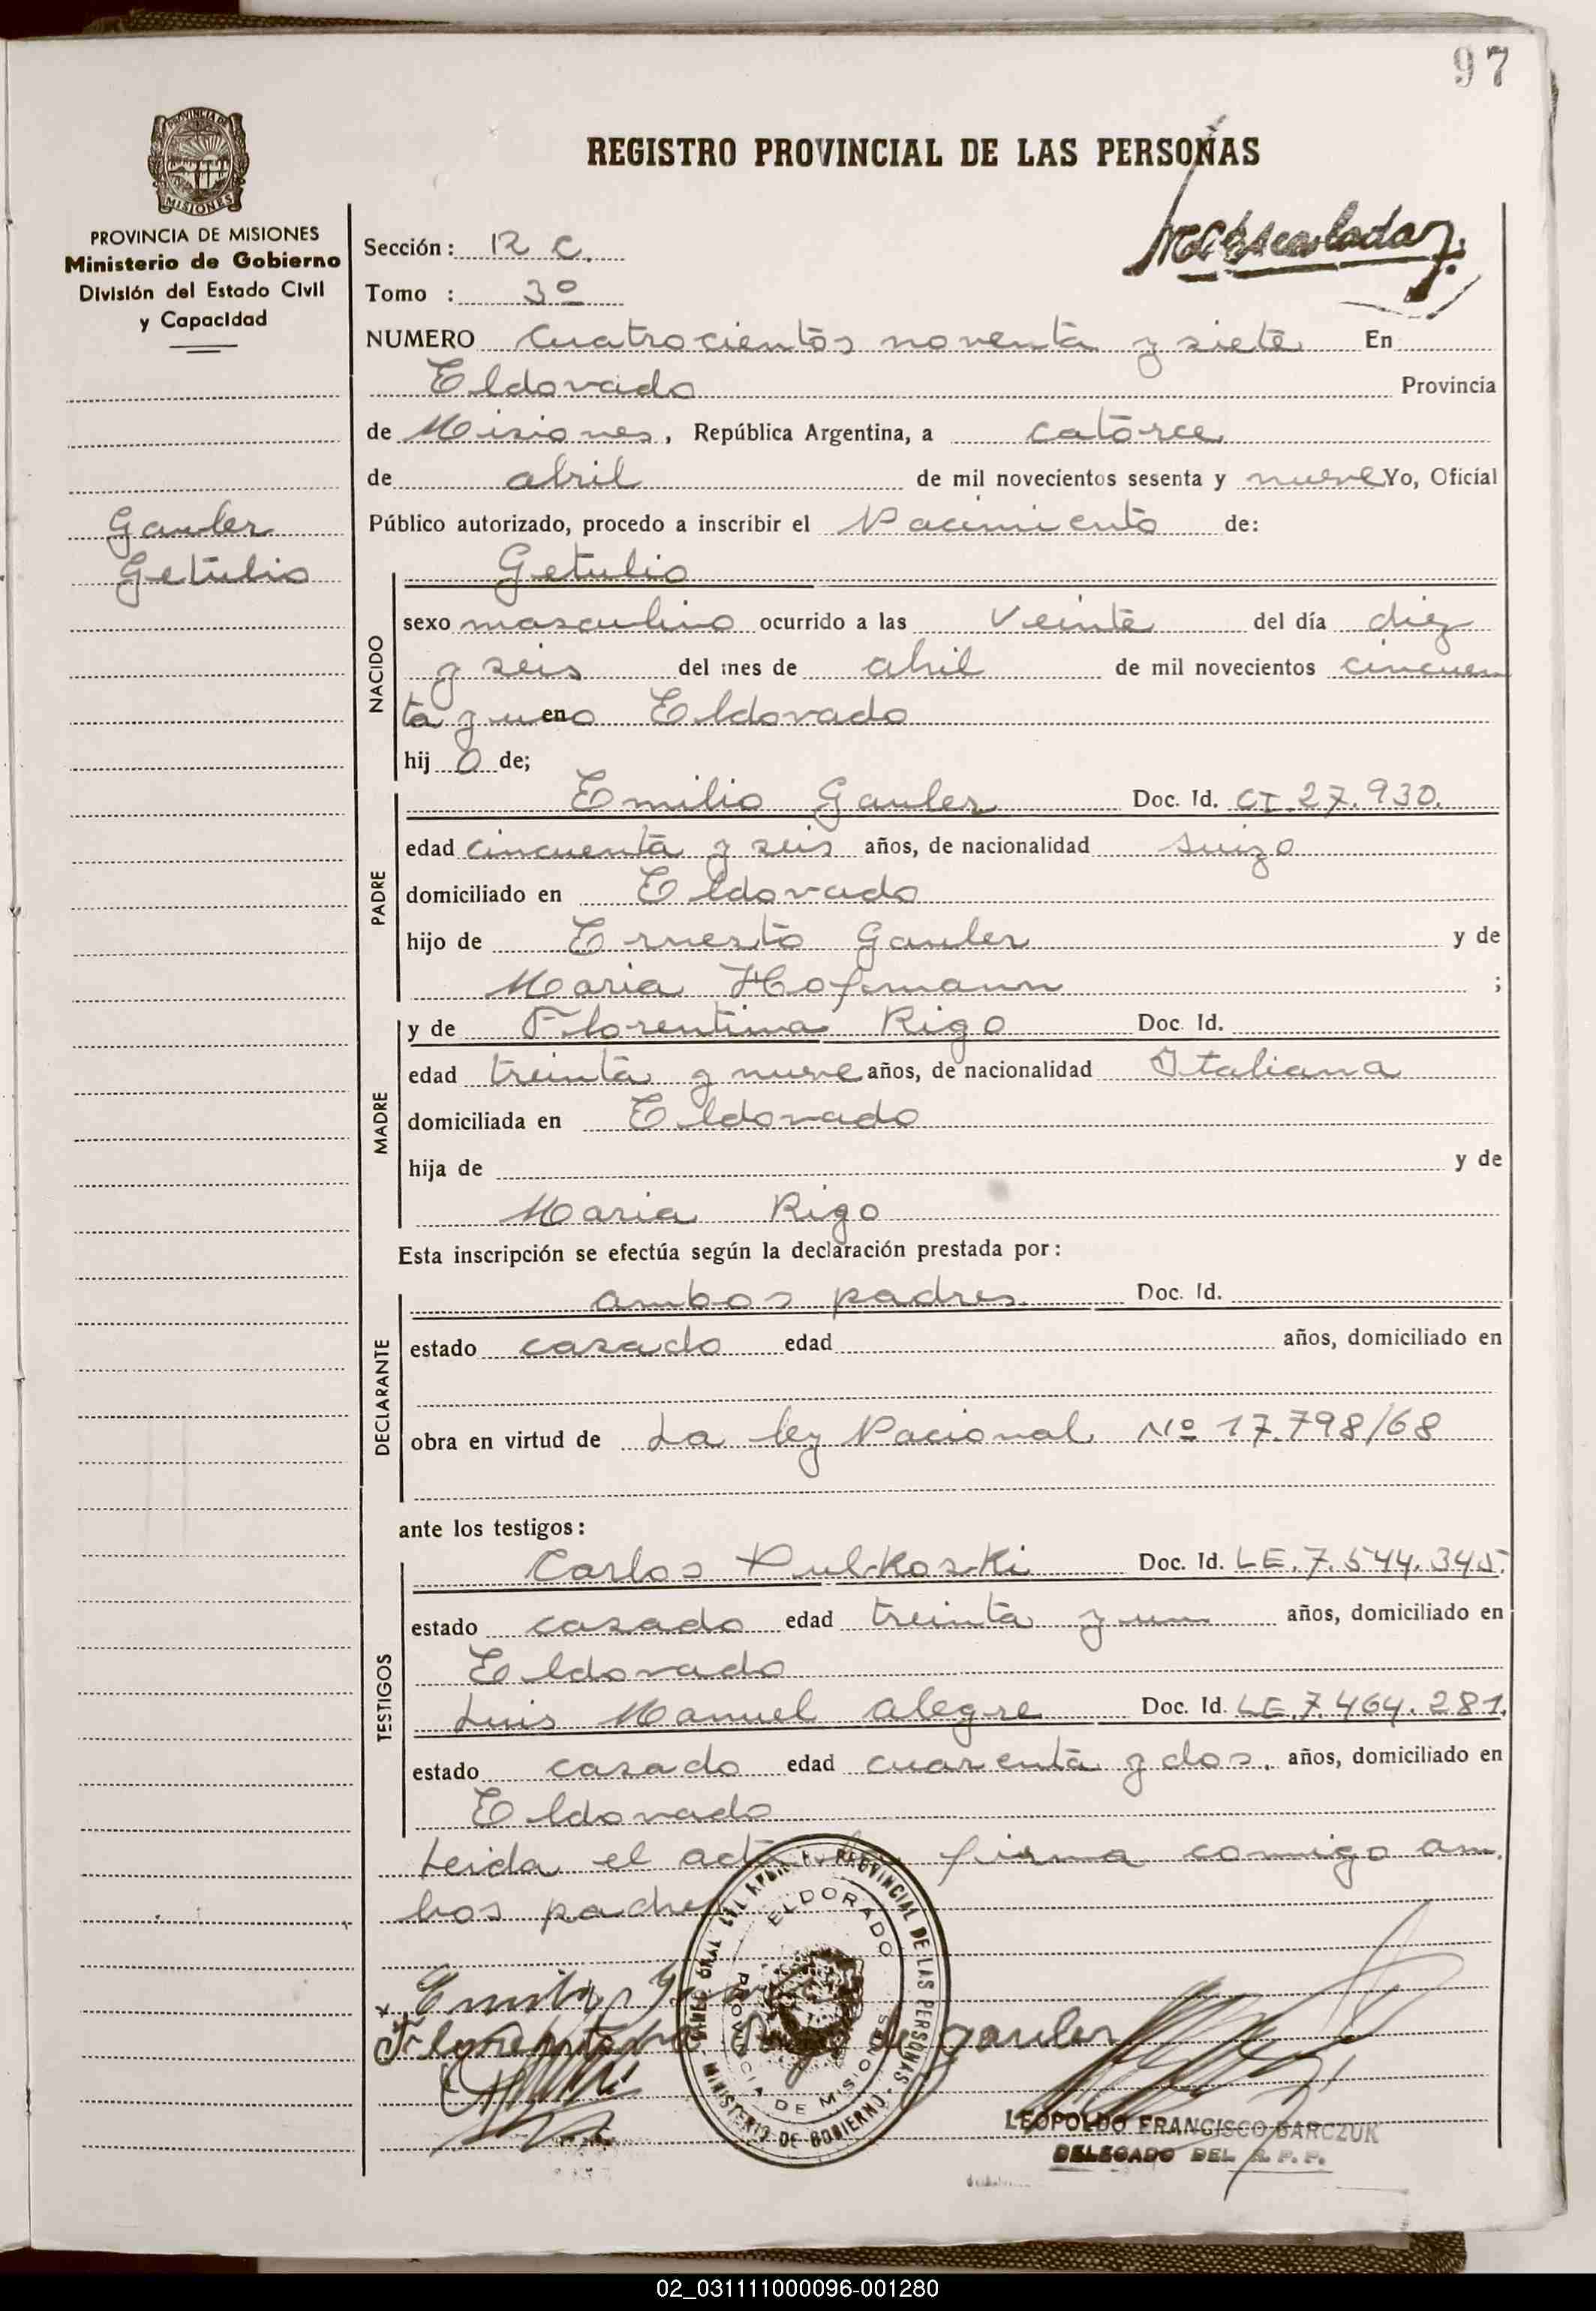 97
REGISTRO PROVINCIAL DE LAS PERSONAS
PROVINCIA DE MISIONES
Ministerio de Gobierno
División del Estado Civil
y Capacidad
Gauler
Getulio
Sección: R C.
Tomo : 3º
NUMERO Cuatrocientos noventa y siete En
Eldorado Provincia
de Misiones, República Argentina, a catorce
de abril de mil novecientos sesenta y nueve Yo, Oficial
Público autorizado, procedo a inscribir el Nacimiento de:
NACIDO
Getulio
sexo masculino ocurrido a las veinte del día diez
y seis del mes de abril de mil novecientos cincuen
ta y uno en Eldorado
hij o de;
PADRE
Emilio Gauler Doc. Id. CI. 27.930.
edad cincuenta y seis años, de nacionalidad suizo
domiciliado en Eldorado
hijo de Ernesto Gauler y de
Maria Hofmann ;
MADRE
y de Florentina Rigo Doc. Id.
edad treinta y nueve años, de nacionalidad Italiana
domiciliada en Eldorado
hija de y de
Maria Rigo
Esta inscripción se efectúa según la declaración prestada por:
DECLARANTE
ambos padres Doc. Id.
estado casado edad años, domiciliado en
obra en virtud de La ley Nacional Nº 17.798/68
ante los testigos:
TESTIGOS
Carlos Pulkoski Doc. Id. LE. 7.544.345.
estado casado edad treinta y un años, domiciliado en
Eldorado
Luis Manuel Alegre Doc. Id. LE. 7.464.281.
estado casado edad cuarenta y dos. años, domiciliado en
Eldorado
Leida el acta firma conmigo am
bos padres
PROVINCIAL DE LAS PERSONAS
MINISTERIO DE GOBIERNO
ELDORADO
PROVINCIA DE MISIONES
de gauler
LEOPOLDO FRANCISCO BARCZUK
DELEGADO DEL R.P.P.
02_031111000096-001280